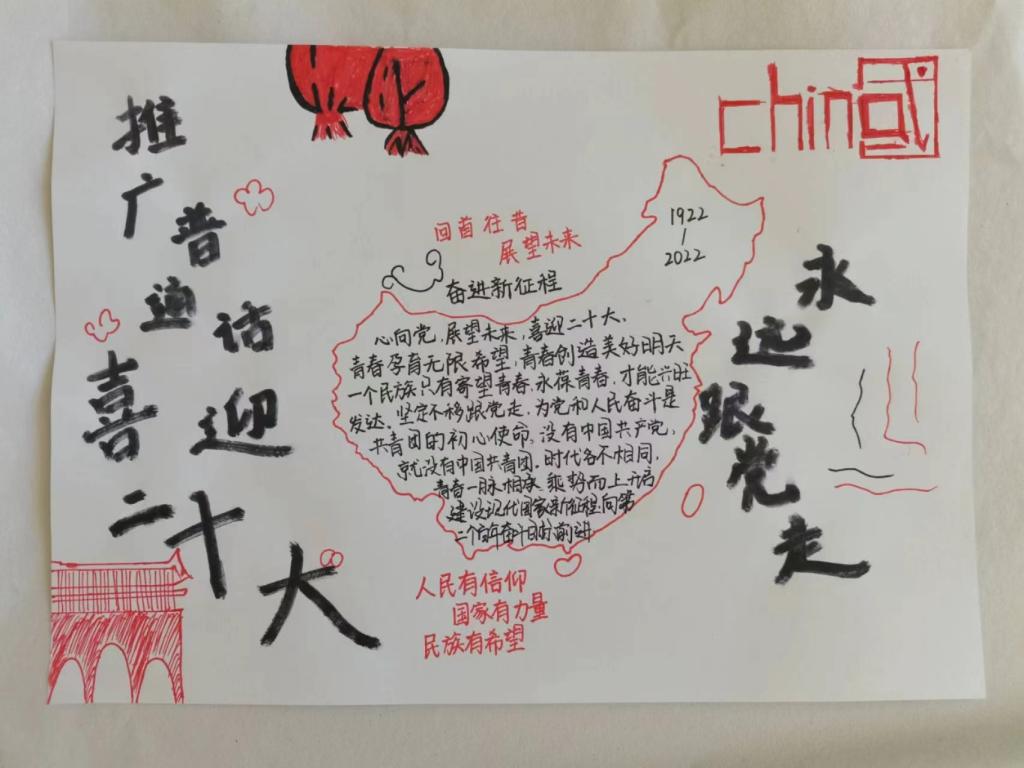 推广普通话
喜迎二十大
china
1922
|
2022
回首往昔
展望未来
奋进新征程
心向党,展望未来,喜迎二十大、
青春孕育无限希望,青春创造美好明天
一个民族只有寄望青春、永葆青春,才能兴旺
发达。坚定不移跟党走,为党和人民奋斗是
共青团的初心使命。没有中国共产党,
就没有中国共青团。时代各不相同,
青春一脉相承 乘势而上开启
建设现代国家新征程向第
二个百年奋斗目标前进
人民有信仰
国家有力量
民族有希望
永远跟党走